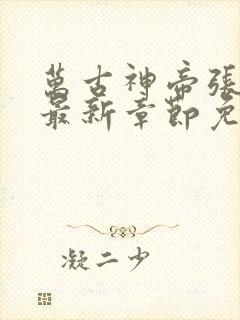 萬古神帝張
最新章節免
凝二少